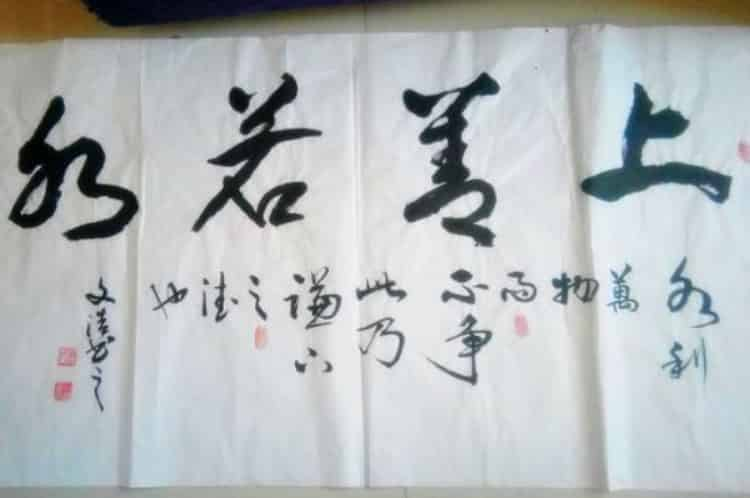 上善若水
水利
萬
物
而
不争
此乃
谦下
之
德
也
文浩书之